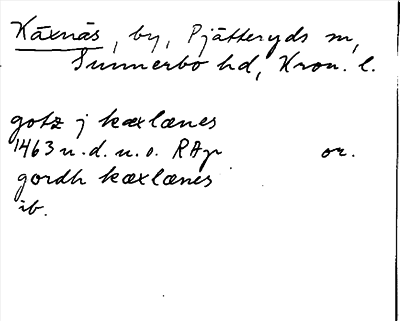 Käxnäs, by, Pjätteryds sn,
Sunnerbo hd, Kron. l.
gotz j kæxlænes
1463 u. d. u. o. RAp or.
gordh kæxlænes
ib.